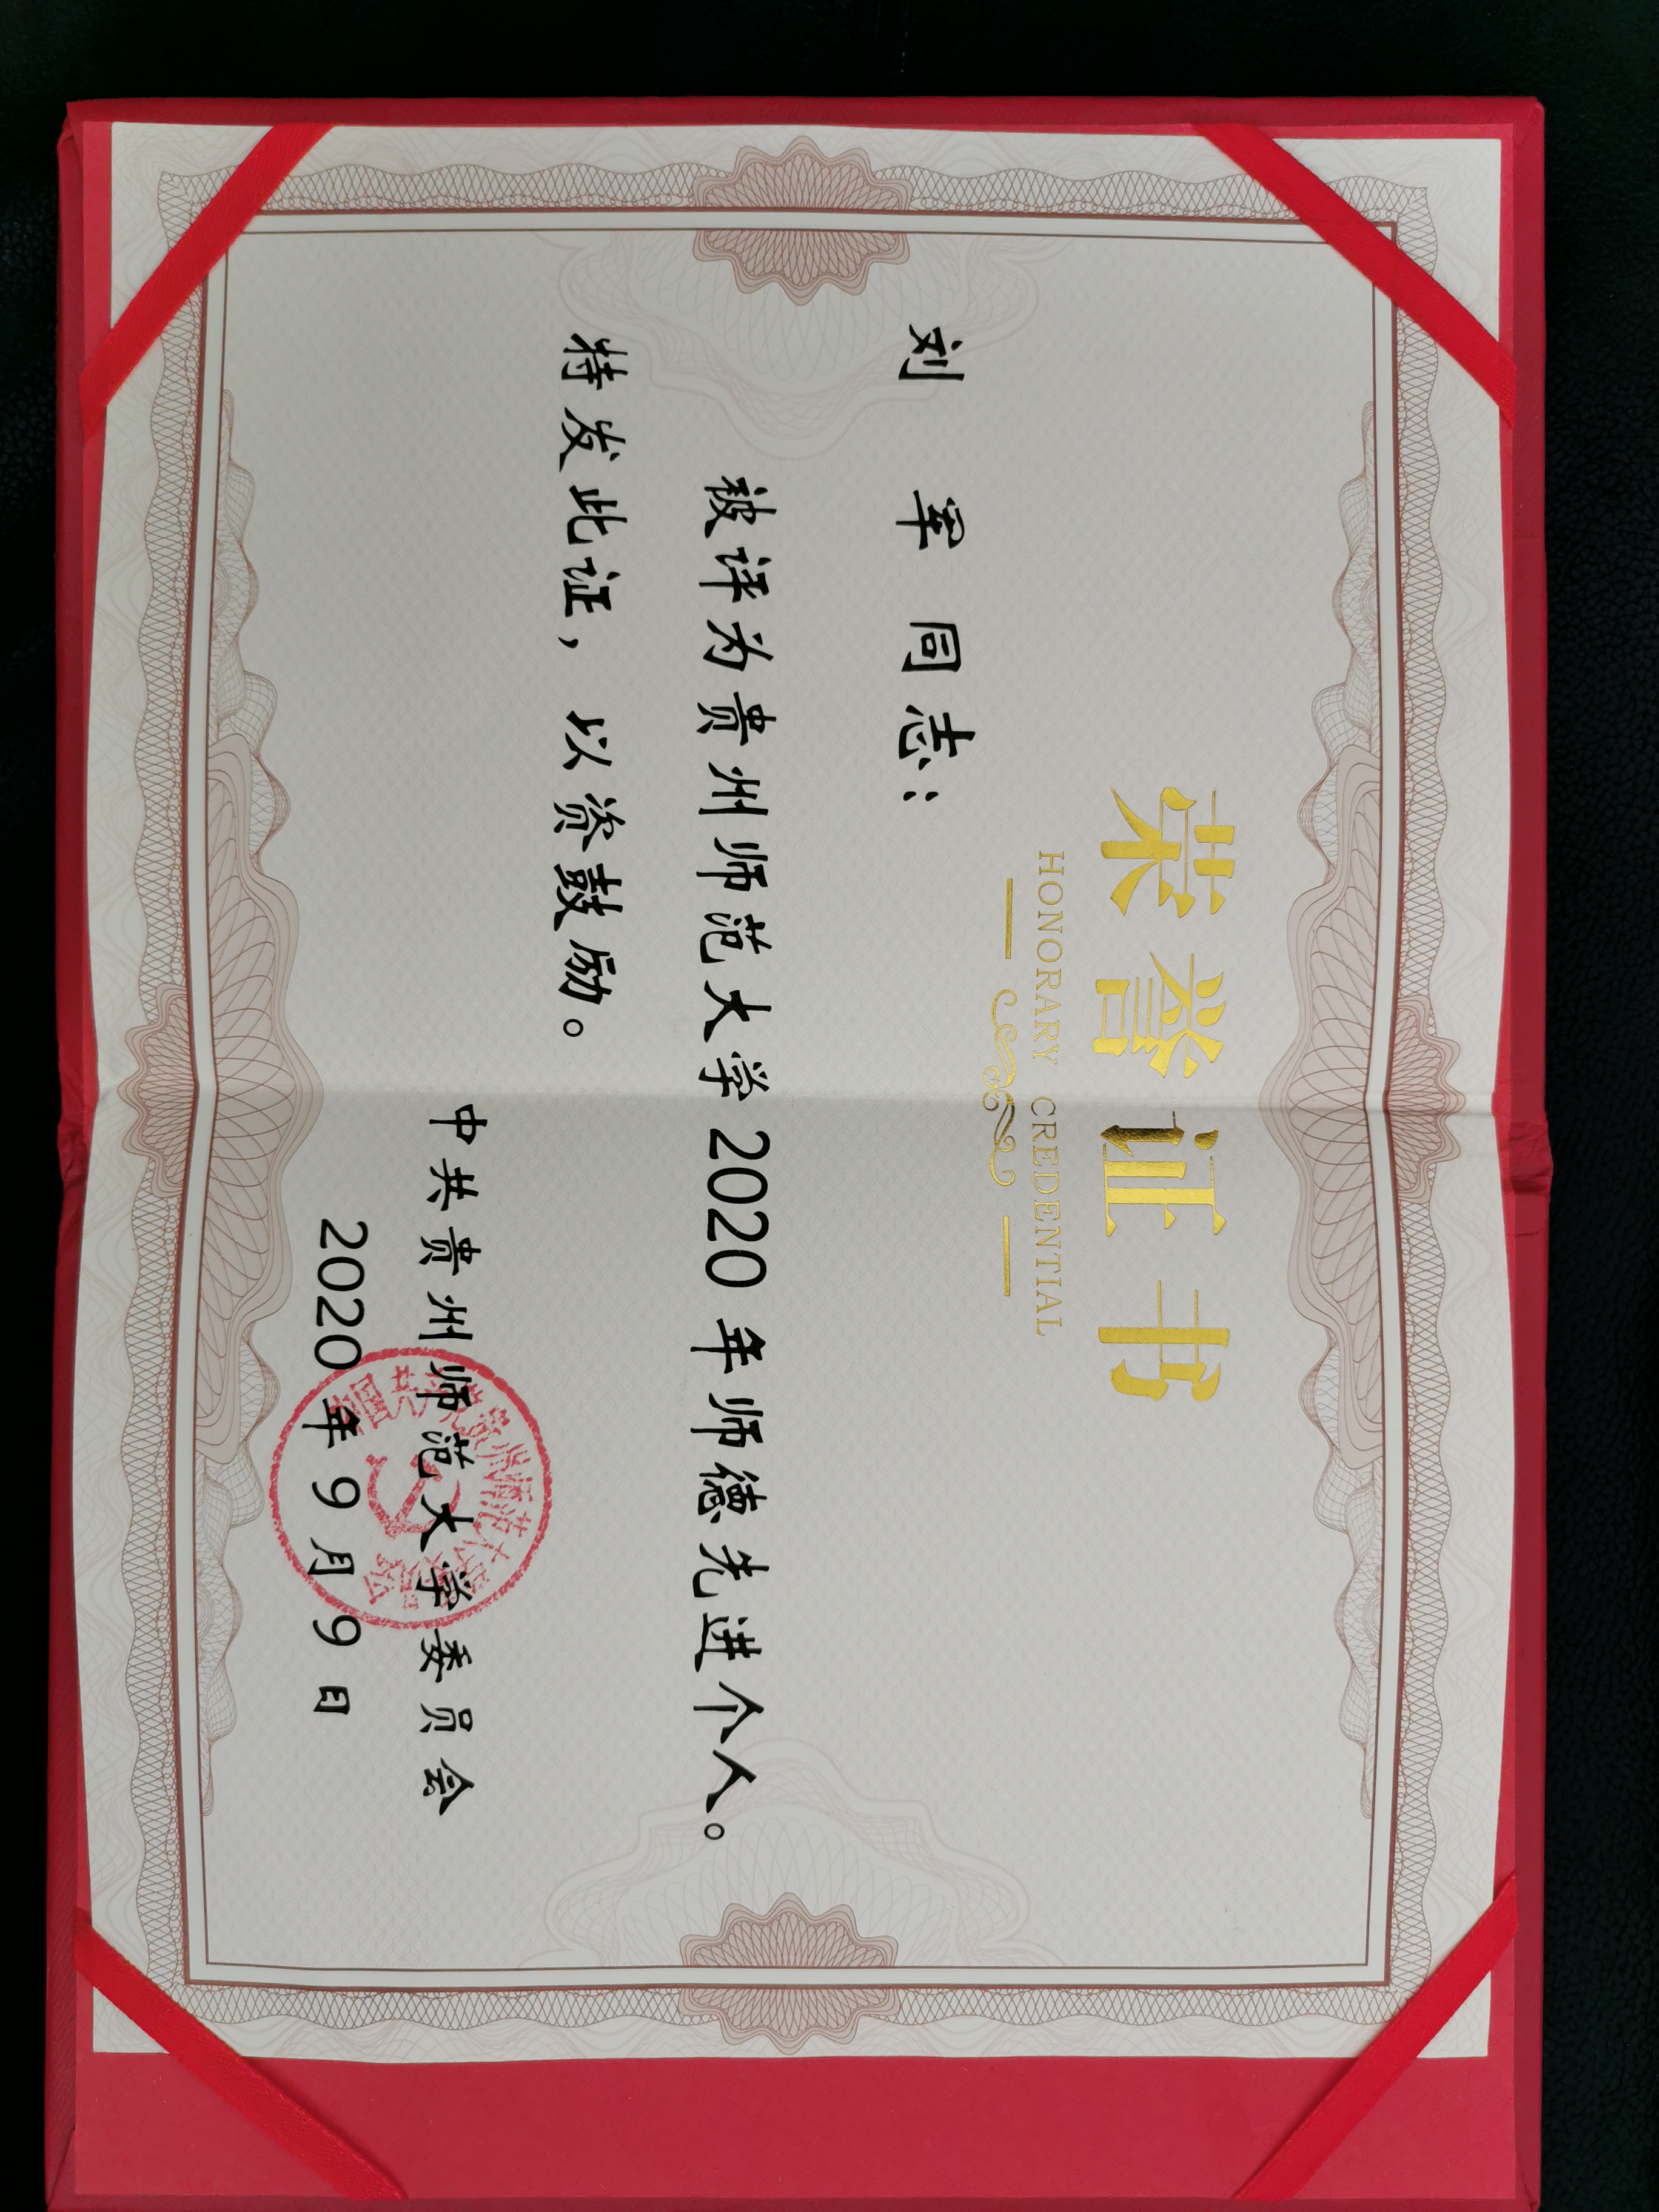 荣誉证书
HONORARY CREDENTIAL
刘 军 同志：
被评为贵州师范大学2020年师德先进个人。
特发此证，以资鼓励。
中共贵州师范大学委员会
2020年9月9日